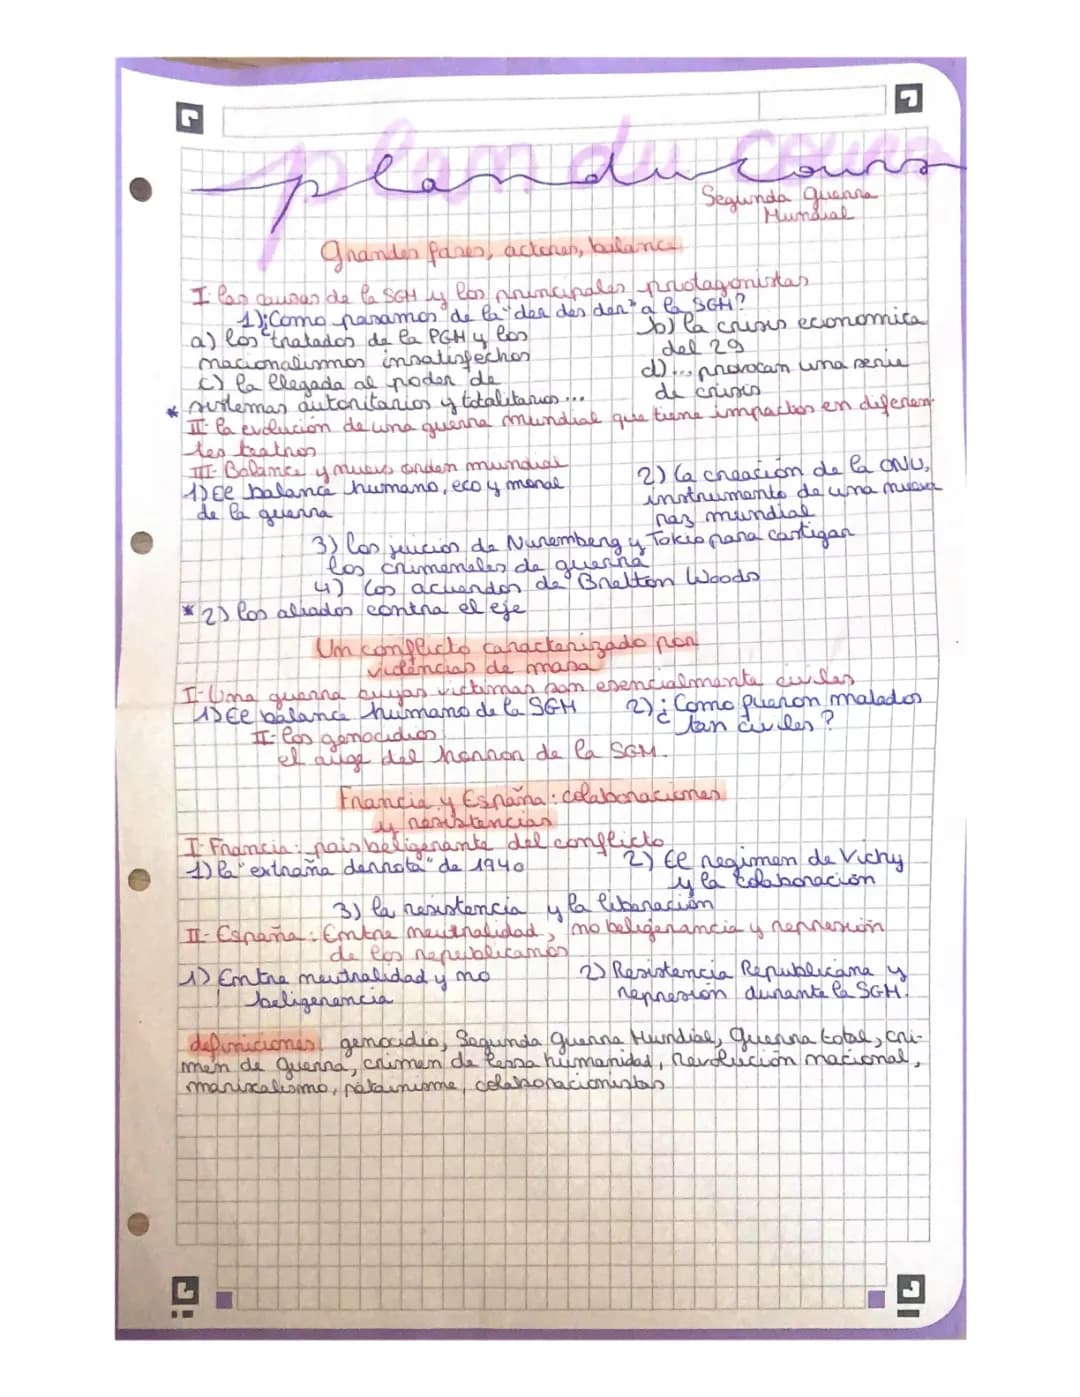 plan du cours
Segunda guerra
Mundial
Grandes fases, actores, balance
I- las causas de la SGM y los principales protagonistas
1) ¿Como pasamos de la "der des der" a la SGM?
a) los tratados de la PGM y los
nacionalismos insatisfechos
b) la crisis economica
del 29
c) la llegada al poder de
* sistemas autoritarios y totalitarios...
d)... provocan una serie
de crisis
II- la evolución de una guerra mundial que tiene impactos en diferen-
tes teatros
III- Balance y nuevo orden mundial
1) El balance humano, eco y moral
de la guerra
2) la creación de la ONU,
instrumento de una nueva
paz mundial
3) los juicios de Nuremberg y Tokio para castigar
los criminales de guerra
4) los acuerdos de Bretton Woods
* 2) los aliados contra el eje
Un conflicto caracterizado por
violencias de masa
I- Una guerra cuyas victimas son esencialmente civiles
1) El balance humano de la SGM
2) ¿Como fueron matados
tan civiles?
II- los genocidios
el auge del horror de la SGM.
Francia y España: colaboraciones
y resistencias
I- Francia: pais beligerante del conflicto
1) la "extraña derrota" de 1940
2) El regimen de Vichy
y la colaboración
3) la resistencia y la liberación
II- España: Entre neutralidad, no beligerancia y represión
de los republicanos
1) Entre neutralidad y no
beligerencia
2) Resistencia Republicana y
represion durante la SGM.
definiciones genocidio, Segunda guerra Mundial, Guerra total, cri-
men de guerra, crimen de lessa humanidad, Revolución nacional,
mariscalismo, pétainisme, colaboracionistas